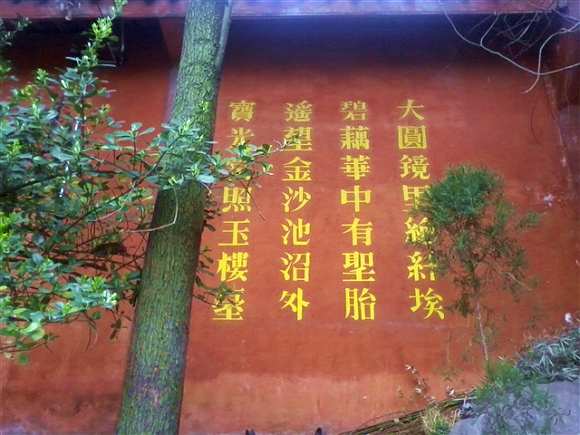 大圓鏡里絶紅埃
碧藕華中有聖胎
遥望金沙池沼外
寶光照玉樓臺